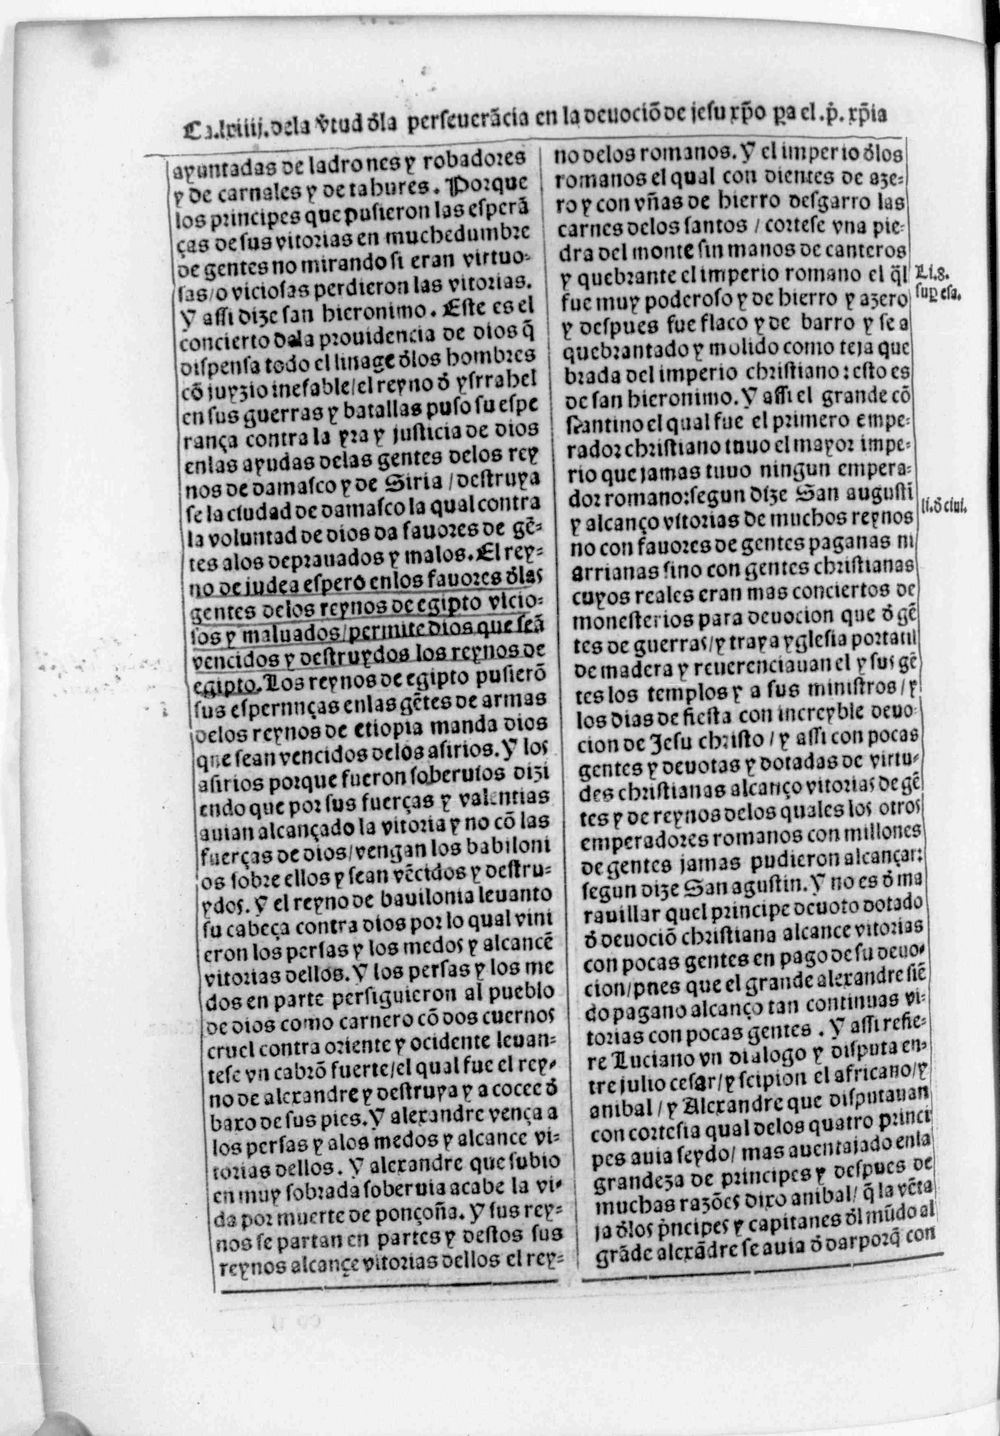 Ca.lxiiij.dela v̄tud d̄la perseuerācia en la deuociō de jesu xp̄o pa el.p̄.xp̄ia
ayuntadas de ladrones y robadores
y de carnales y de tahures. Porque
los principes que pusieron las esperā
ças de sus vitorias en muchedumbre
de gentes no mirando si eran virtuo-
sas/o viciosas perdieron las vitorias.
Y assi dize san hieronimo. Este es el
concierto dela prouidencia de dios q̄
dispensa todo el linage d̄los hombres
cō juyzio inefable/el reyno d̄ ysrrahel
en sus guerras y batallas puso su espe
rança contra la yra y justicia de dios
enlas ayudas delas gentes delos rey
nos de damasco y de Siria/destruya
se la ciudad de damasco la qual contra
la voluntad de dios da fauores de gē-
tes alos deprauados y malos. El rey-
no de judea espero enlos fauores d̄las
gentes delos reynos de egipto vicio-
sos y maluados/permite dios que seā
vencidos y destruydos los reynos de
egipto. Los reynos de egipto pusierō
sus espernnças enlas gētes de armas
delos reynos de etiopia manda dios
que sean vencidos delos asirios. Y los
asirios porque fueron soberuios dizi
endo que por sus fuerças y valentias
auian alcançado la vitoria y no cō las
fuerças de dios/vengan los babiloni
os sobre ellos y sean vēcidos y destru-
ydos. Y el reyno de bauilonia leuanto
su cabeça contra dios por lo qual vini
eron los persas y los medos y alcancē
vitorias dellos. Y los persas y los me
dos en parte persiguieron al pueblo
de dios como carnero cō dos cuernos
cruel contra oriente y ocidente leuan-
tese vn cabrō fuerte/el qual fue el rey-
no de alexandre y destruya y a cocee d̄
baxo de sus pies. Y alexandre vença a
los persas y alos medos y alcance vi-
torias dellos. Y alexandre que subio
en muy sobrada soberuia acabe la vi-
da por muerte de ponçoña. Y sus rey-
nos se partan en partes y destos sus
reynos alcançe vitorias dellos el rey-
no delos romanos. Y el imperio d̄los
romanos el qual con dientes de aze-
ro y con vñas de hierro desgarro las
carnes delos santos / cortese vna pie-
dra del monte sin manos de canteros
y quebrante el imperio romano el q̄l
fue muy poderoso y de hierro y azero
y despues fue flaco y de barro y se a
quebrantado y molido como teja que
brada del imperio christiano: esto es
de san hieronimo. Y assi el grande cō
stantino el qual fue el primero empe-
rador christiano tuuo el mayor impe-
rio que jamas tuuo ningun empera-
dor romano: segun dize San augusti
y alcanço vitorias de muchos reynos
no con fauores de gentes paganas ni
arrianas sino con gentes christianas
cuyos reales eran mas conciertos de
monesterios para deuocion que d̄ gē
tes de guerras/y traya yglesia portatil
de madera y reuerenciauan el y sus gē
tes los templos y a sus ministros/y
los dias de fiesta con increyble deuo
cion de Jesu christo/y assi con pocas
gentes y deuotas y dotadas de virtu-
des christianas alcanço vitorias de gē
tes y de reynos delos quales los otros
emperadores romanos con millones
de gentes jamas pudieron alcançar:
segun dize San agustin. Y no es d̄ ma
rauillar quel principe deuoto dotado
d̄ deuociō christiana alcance vitorias
con pocas gentes en pago de su deuo-
cion/pnes que el grande alexandre siē
do pagano alcanço tan continuas vi-
torias con pocas gentes. Y assi refie-
re Luciano vn dialogo y disputa en-
tre julio cesar/y scipion el africano/y
anibal/y Alexandre que disputauan
con cortesia qual delos quatro princi
pes auia seydo/mas auentajado enla
grandeza de principes y despues de
muchas razōes dixo anibal/q̄ la vēta
ja d̄los p̄ncipes y capitanes d̄l mūdo al
grāde alexādre se auia d̄ dar porq̄ con
Li.8.
sup esa.
li.d̄ ciui.